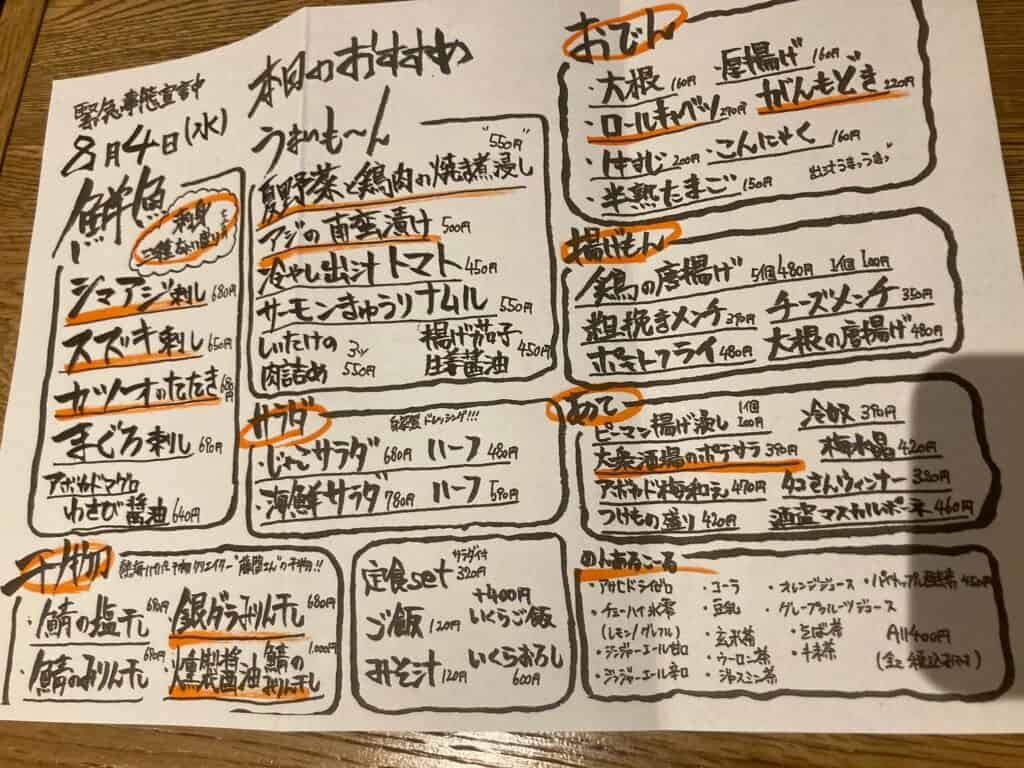 緊急事態宣言中
8月4日(水)
鮮魚
刺身
三種盛り
シマアジ刺し 680円
スズキ刺し 650円
カツオのたたき 680円
まぐろ刺し 690円
アボカドマグロ
わさび醤油 640円
本日のおすすめ
うまいも〜ん
夏野菜と鶏肉の焼き煮浸し "550円"
アジの南蛮漬け 500円
冷やし出汁トマト 450円
サーモンきゅうりナムル 550円
しいたけの肉詰め 3ヶ 550円
揚げ茄子生姜醤油 450円
サラダ
自家製ドレッシング!!!
・じゃこサラダ 680円 ハーフ 480円
・海鮮サラダ 780円 ハーフ 590円
おでん
・大根 160円 ・厚揚げ 160円
・ロールキャベツ 290円 がんもどき 220円
・牛すじ 200円 ・こんにゃく 160円
・半熟たまご 150円
揚げもん
鶏の唐揚げ 5個480円 1個100円
粗挽きメンチ 390円 チーズメンチ 350円
ポテトフライ 480円 大根の唐揚げ 480円
あて
ピーマン揚げ浸し 1個100円 冷奴 390円
大衆酒場のポテサラ 390円 梅水晶 420円
アボカド梅和え 470円 タコさんウィンナー 320円
つけもの盛り 420円 酒盗マスカルポーネ 460円
干物
・鯖の塩干し 690円 ・銀ダラみりん干し 680円
・鯖のみりん干し 690円 ・燻製醤油鯖のみりん干し 1,000円
定食set サラダ付 320円
ご飯 120円 +400円 いくらご飯
みそ汁 120円 いくらおろし 600円
のんあるこーる
・アサヒドライゼロ ・コーラ ・オレンジジュース
・チューハイ氷零 ・豆乳 ・グレープフルーツジュース
(レモン/グレフル) ・玄米茶 ・そば茶 All400円
・ジンジャーエール甘口 ・ウーロン茶
・ジンジャーエール辛口 ・ジャスミン茶